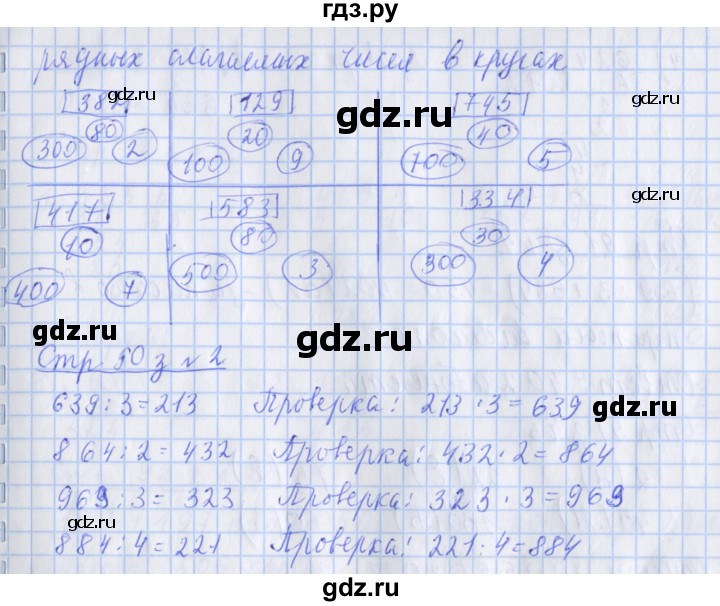 гдз.ру
рядных слагаемых чисел в кругах
382 129 745
gdz.ru gdz.ru gdz.ru
80 20 40
300 2 100 9 700 5
gdz.ru
417 583 334
10 80 30
400 7 500 3 300 4
gdz.ru gdz.ru gdz.ru
Стр 50 з № 2
639:3=213 Проверка: 213·3=639
gdz.ru
864:2=432 Проверка: 432·2=864
969:3=323 Проверка: 323·3=969
gdz.ru gdz.ru
884:4=221 Проверка: 221:4=884
gdz.ru
gdz.ru